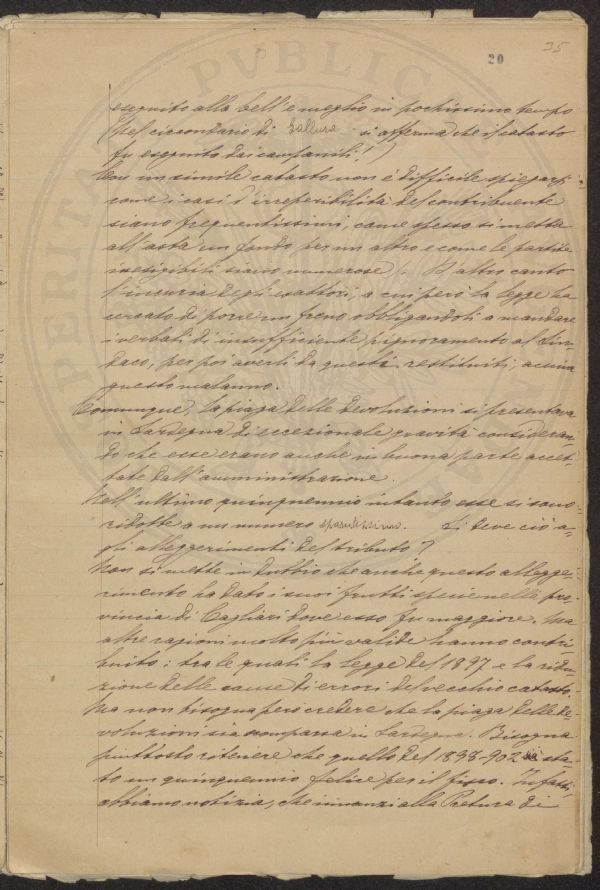 35
20
eseguito alla bell'e meglio in pochissimo tempo
(Nel circondario di Gallura si afferma che il catasto
fu eseguito dai campanili!)
Con un simile catasto non è difficile spiegarsi
come i casi d'irreperibilità del contribuente
siano frequentissimi, come spesso si metta
all'asta un fondo per un altro e come le partite
inesigibili siano numerose. D'altro canto
l'incuria degli esattori, a cui però la legge ha
cercato di porre un freno obbligandoli a mandare
i verbali di insufficiente pignoramento al Sin-
daco, per poi averli da questi restituiti, acuiva
questo malanno.
Comunque, la piaga delle devoluzioni si presentava
in Sardegna di eccezionale gravità consideran-
do che esse erano anche in buona parte accet-
tate dall'amministrazione.
Nell'ultimo quinquennio intanto esse si sono
ridotte a un numero sparutissimo. Si deve ciò a-
gli alleggerimenti del tributo?
Non si mette in dubbio che anche questo allegge-
rimento ha dato i suoi frutti specie nella pro-
vincia di Cagliari dove esso fu maggiore. Ma
altre ragioni molto più valide hanno contri-
buito: tra le quali la legge del 1897 e la ridu-
zione delle cause di errori del vecchio catasto.
Ma non bisogna però credere che la piaga delle de-
voluzioni sia scomparsa in Sardegna. Bisogna
piuttosto ritenere che quello del 1898-902 sia sta-
to un quinquennio felice per il fisco. Infatti
abbiamo notizia, che innanzi alla Pretura di